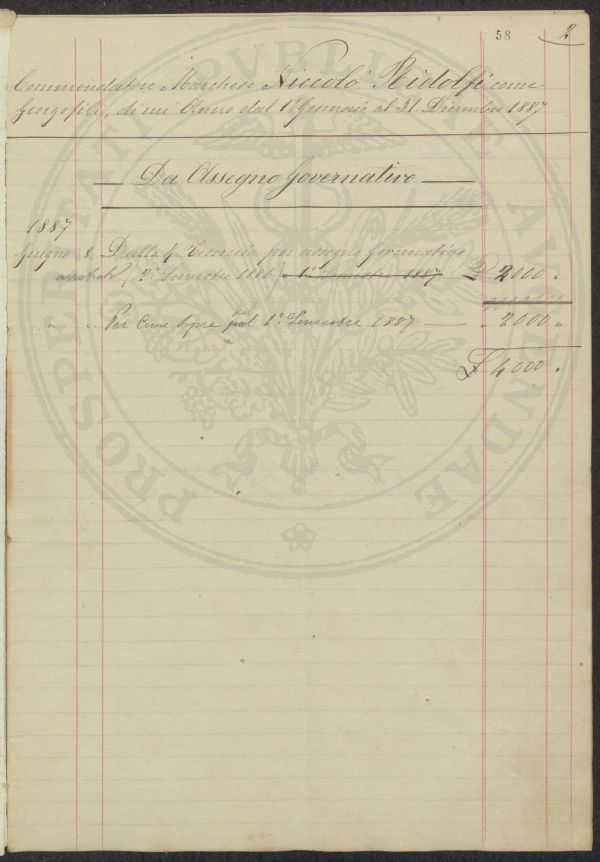 58 2
Commendatore Marchese Niccolò Ridolfi come
Georgofili, di un' Anno dal 1° Gennaio al 31 Dicembre 1887
Da Assegno Governativo
1887
Giugno 8 Dalla Tesoreria per assegno Governativo
arretrato / 2° Semestre 1886 / e 1° Semestre 1887 £ 2000 "
" " Per Come Sopra pel 1° Semestre 1887 " 2000 "
£ 4000 "
PROSPERITATI PVBLICAE AVGENDAE